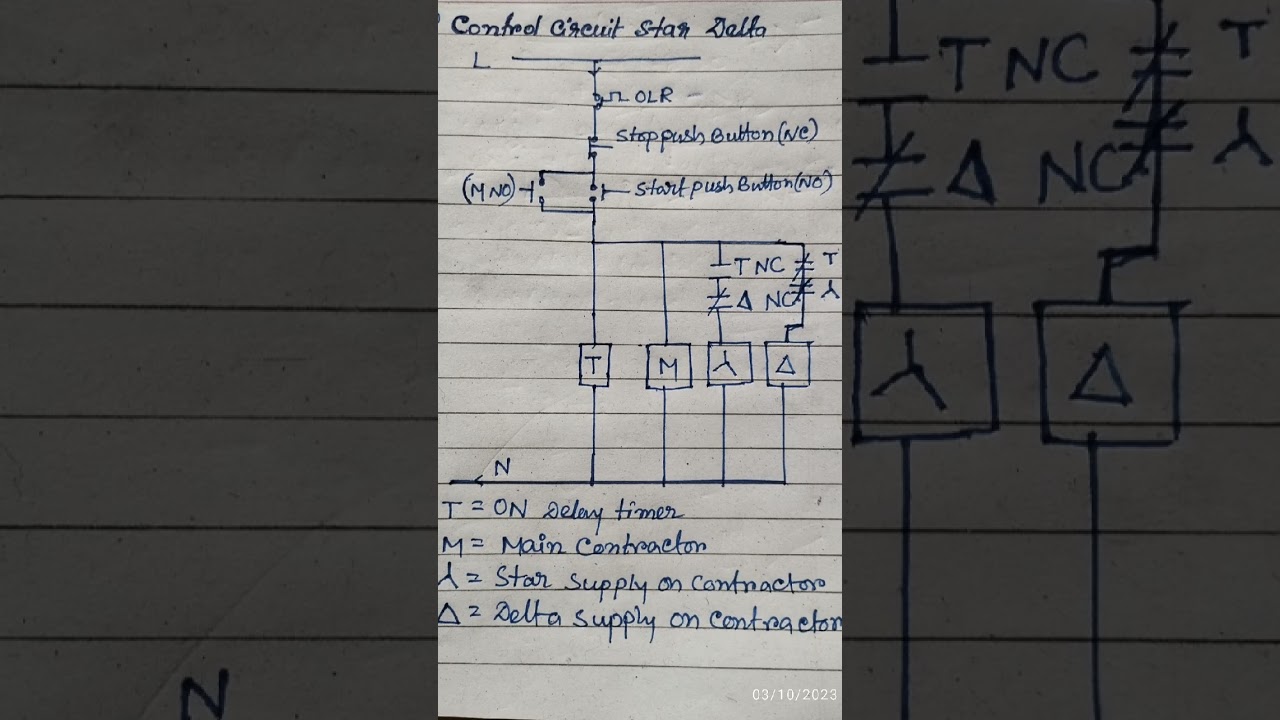 Control Circuit Star Delta
L
OLR
Stop push Button (NC)
(M NO)
Start push Button (NO)
T NC T
Δ NC ⅄
T M ⅄ Δ
N
T = ON Delay timer
M = Main Contractor
⅄ = Star supply on contractor
Δ = Delta supply on contractor
03/10/2023
T NC T
Δ NC ⅄
⅄ Δ
N